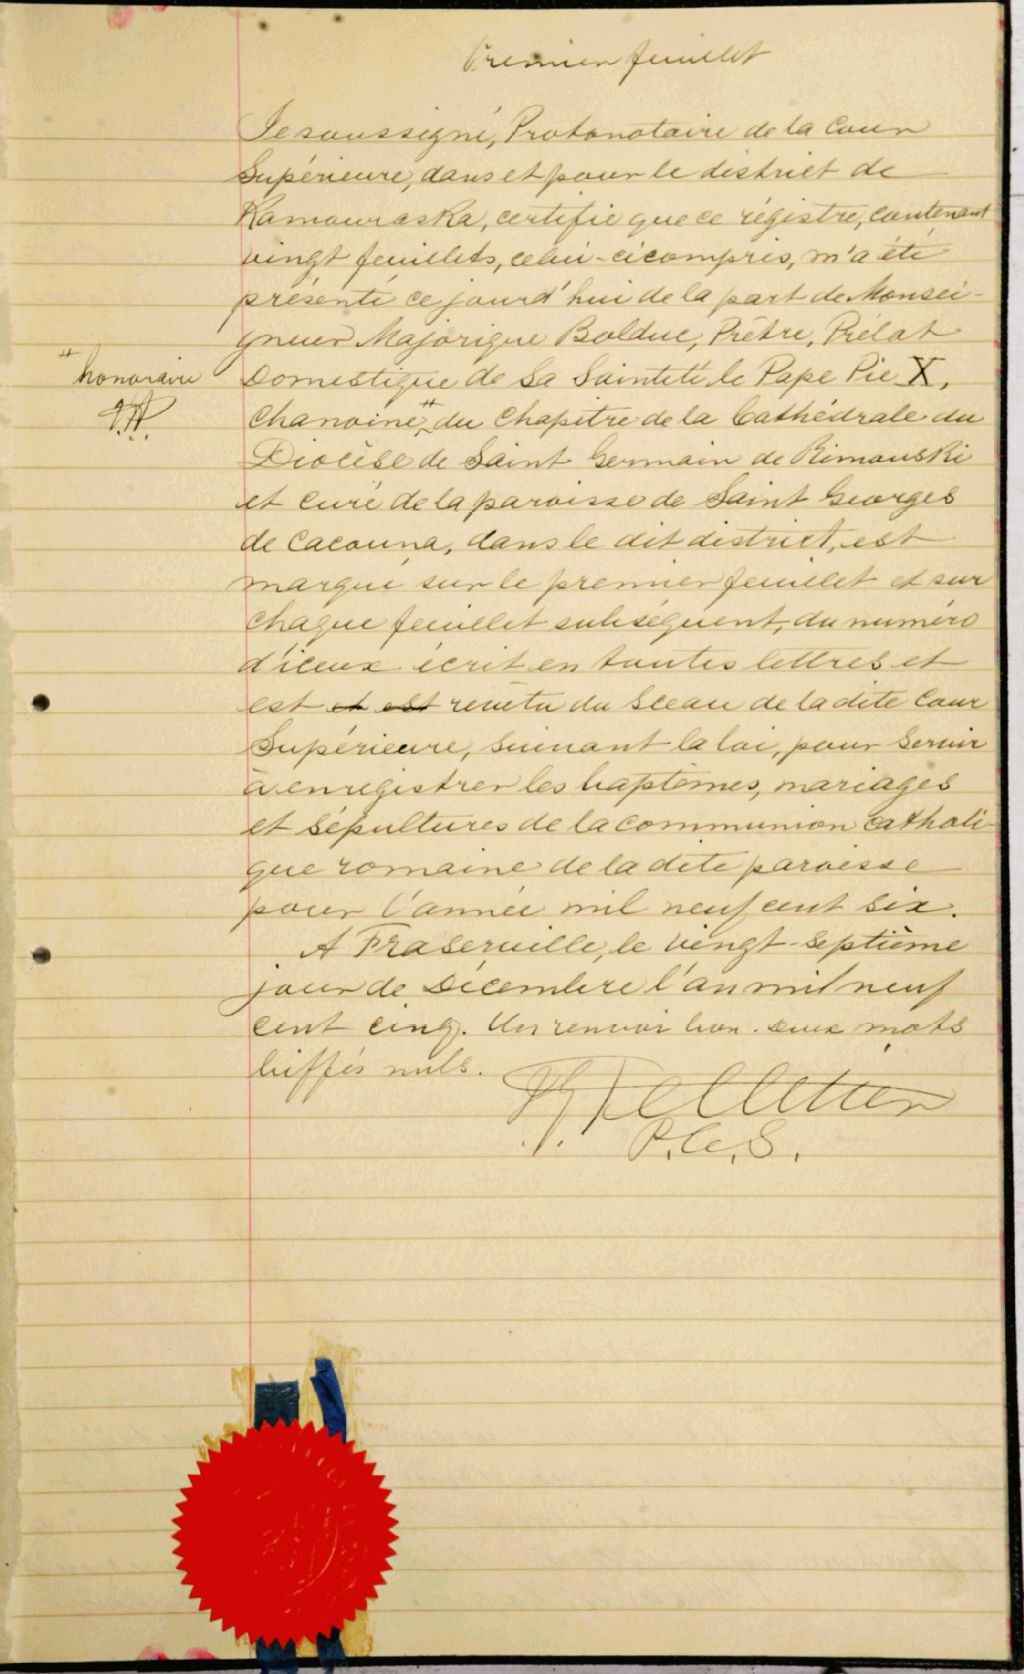 Premier feuillet
Je soussigné, Protonotaire de la Cour
Supérieure, dans et pour le district de
Kamouraska, certifie que ce régistre, contenant
vingt feuillets, celui-ci compris, m'a été
présenté ce jourd'hui de la part de Monsei-
gneur Majorique Bolduc, Prêtre, Prélat
Domestique de Sa Sainteté le Pape Pie X,
# honoraire
Chanoine # du Chapitre de la Cathédrale du
Diocèse de Saint Germain de Rimouski
et curé de la paroisse de Saint Georges
de Cacouna, dans le dit district, est
marqué sur le premier feuillet et sur
chaque feuillet subséquent, du numéro
d'iceux écrit en toutes lettres et
est et est revêtu du sceau de la dite Cour
Supérieure, suivant la loi, pour servir
à enregistrer les baptêmes, mariages
et sépultures de la communion catholi-
que romaine de la dite paroisse
pour l'année mil neuf cent six.
A Fraserville, le vingt-septième
jour de Décembre l'an mil neuf
cent cinq. Un renvoi bon. Deux mots
biffés nuls.
Pelletier
P.C.S.